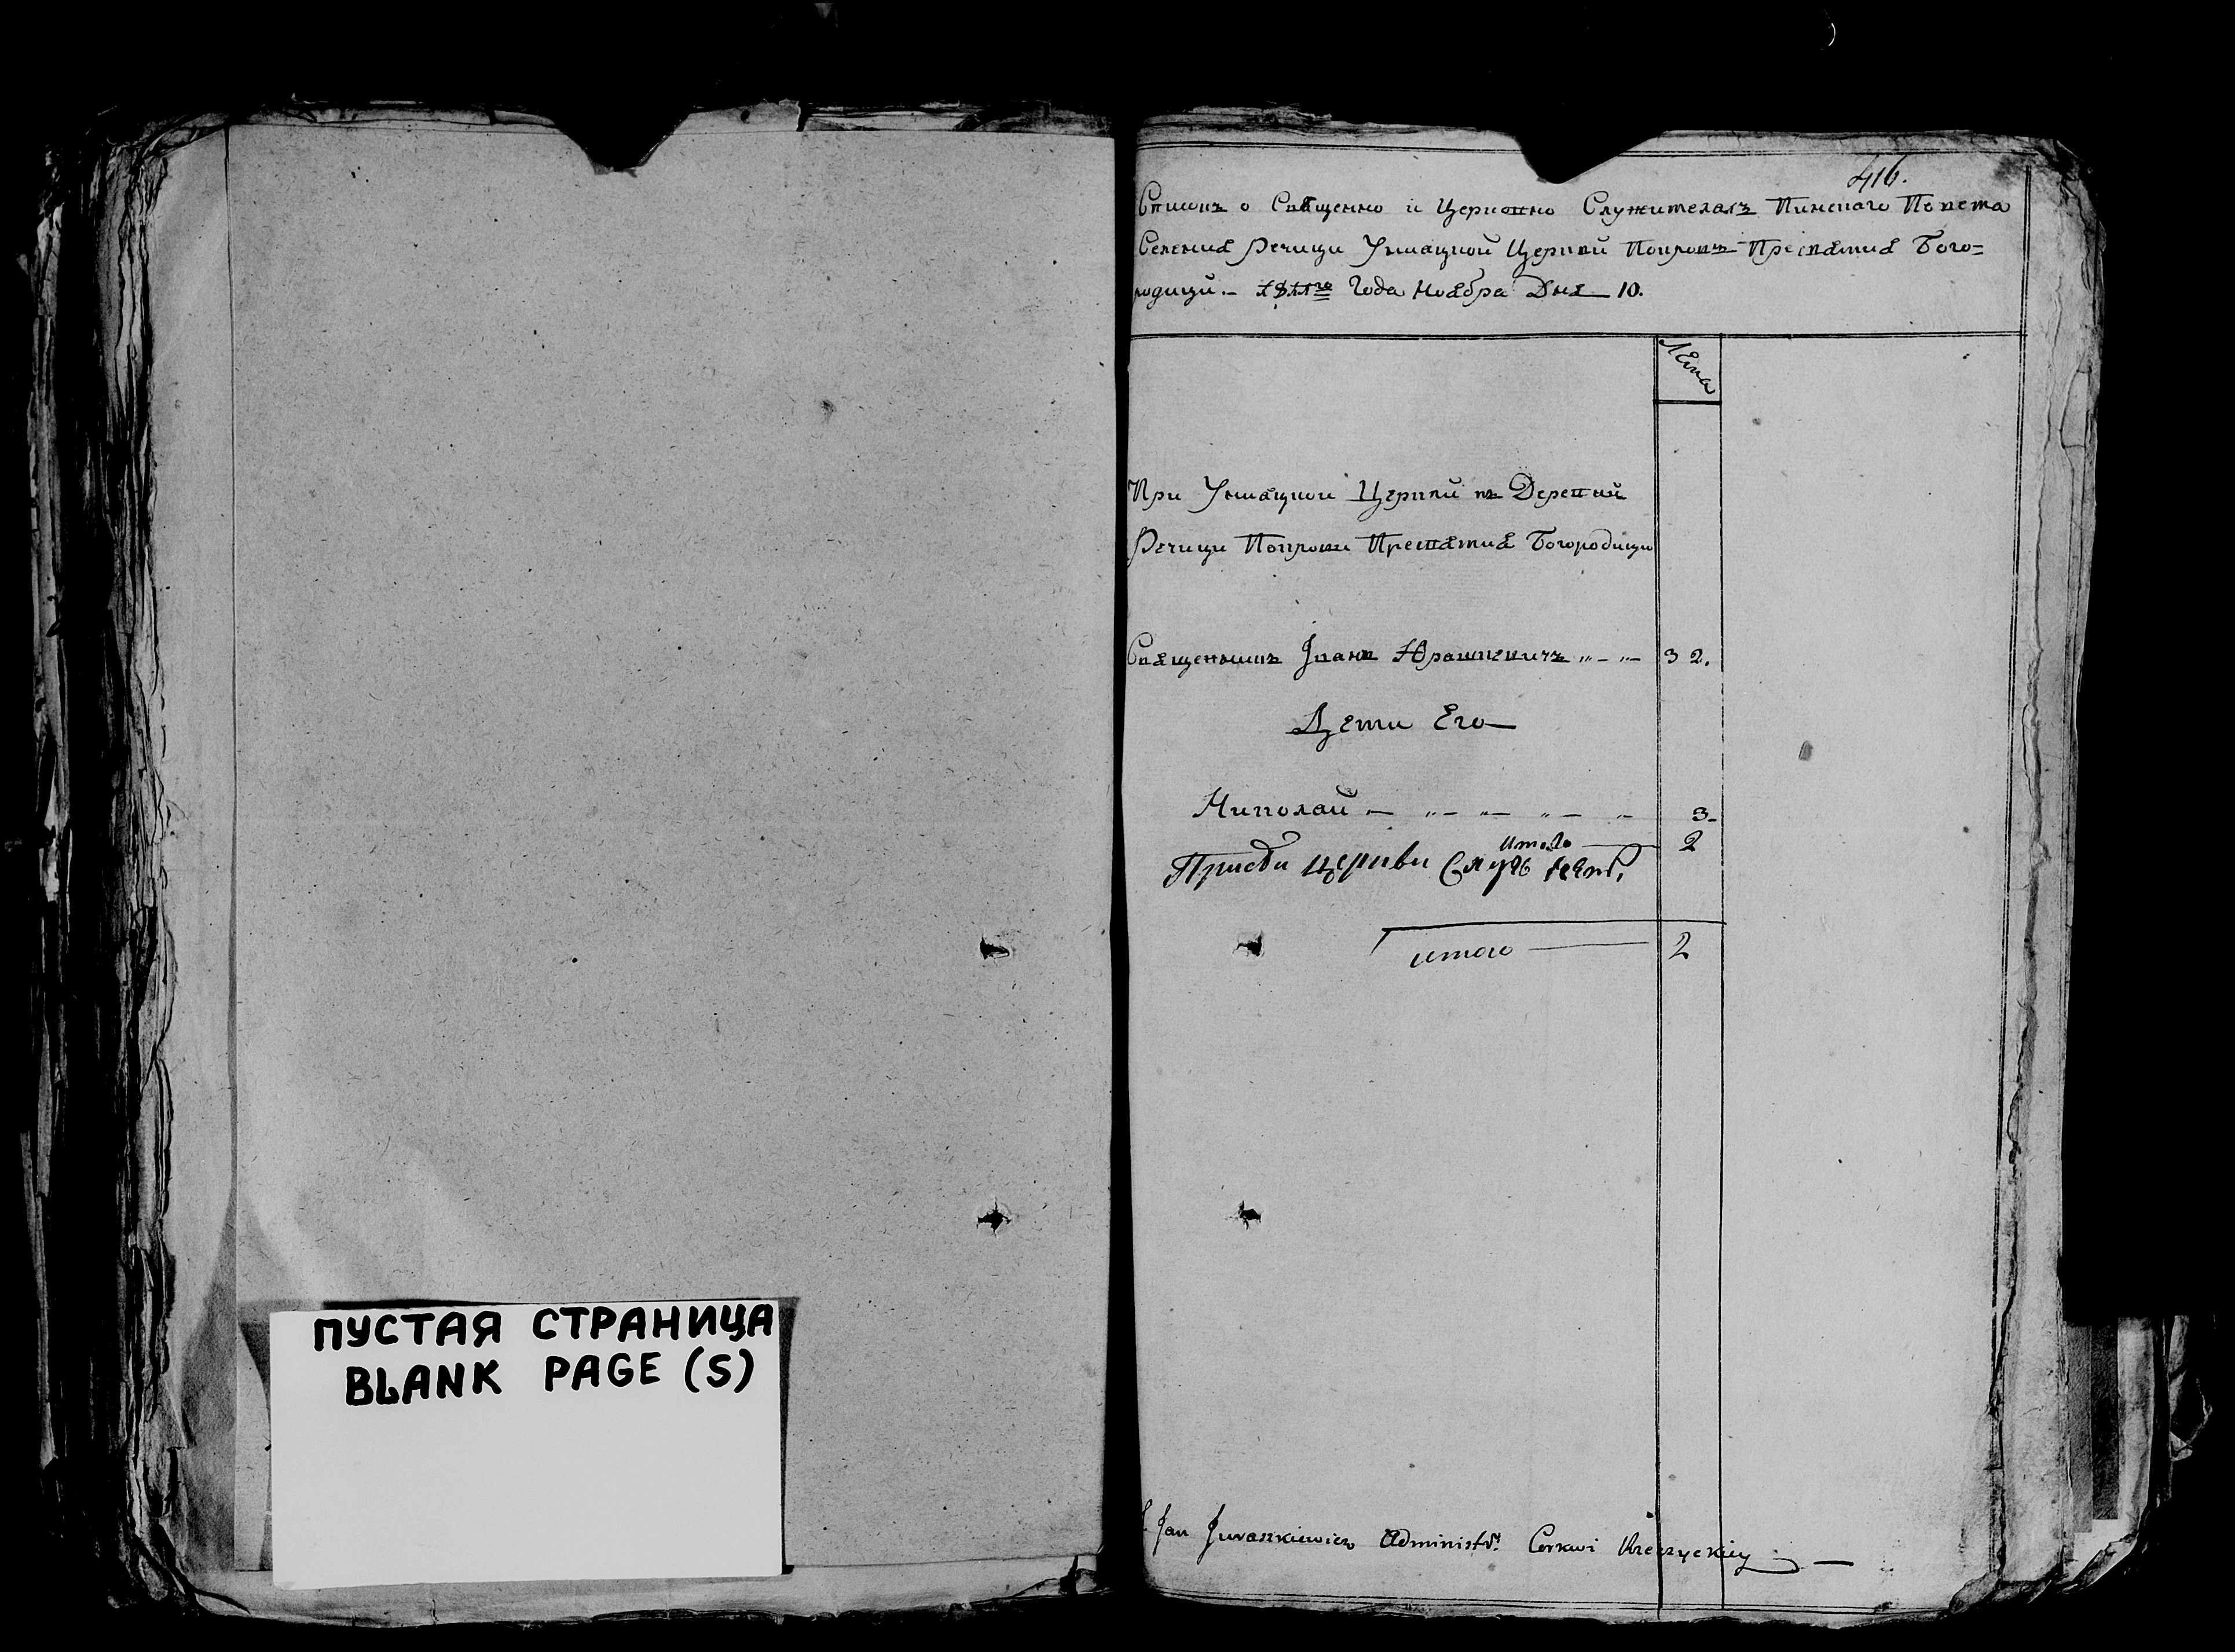 ПУСТАЯ СТРАНИЦА
BLANK PAGE (S)
416.
Списокъ о Священно и Церковно Служителахъ Пинскаго Повета
Селения Речици Униацкой Церкви Покровъ Пресвятия Бого=
родици.– Года Ноября Дня 10.
Лета
При Униацкой Церкви въ Деревни
Речици Покрови Пресвятия Богородици
Священникъ Іванъ Юрашкевичъ 32.
Дети Его
Николай 3.
Итого 2
При сей церкви Служ
итого 2
Jan Juraszkiewicz Administr. Cerkwi Rzeczyckiey